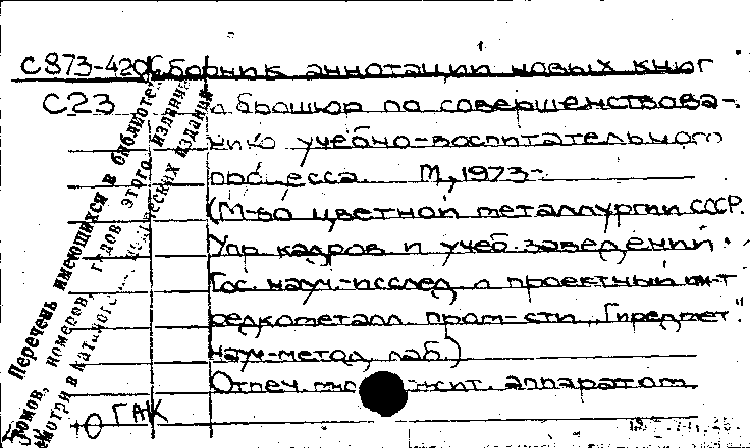 С873-420 Сборник аннотаций новых книг
С23 и брошюр по совершенствова-
нию учебно-воспитательного
процесса. М., 1973-
(М-во цветной металлургии СССР.
Упр. кадров и учеб. заведений.
Гос. науч.-исслед. и проектный ин-т
редкометалл. пром-сти „Гиредмет".
Науч.-метод. лаб.)
Отпеч. множит. аппаратом
Перечень имеющихся в библиотеке
томов, номеров, годов этого издания
смотри в Каталоге изданий
ГАК